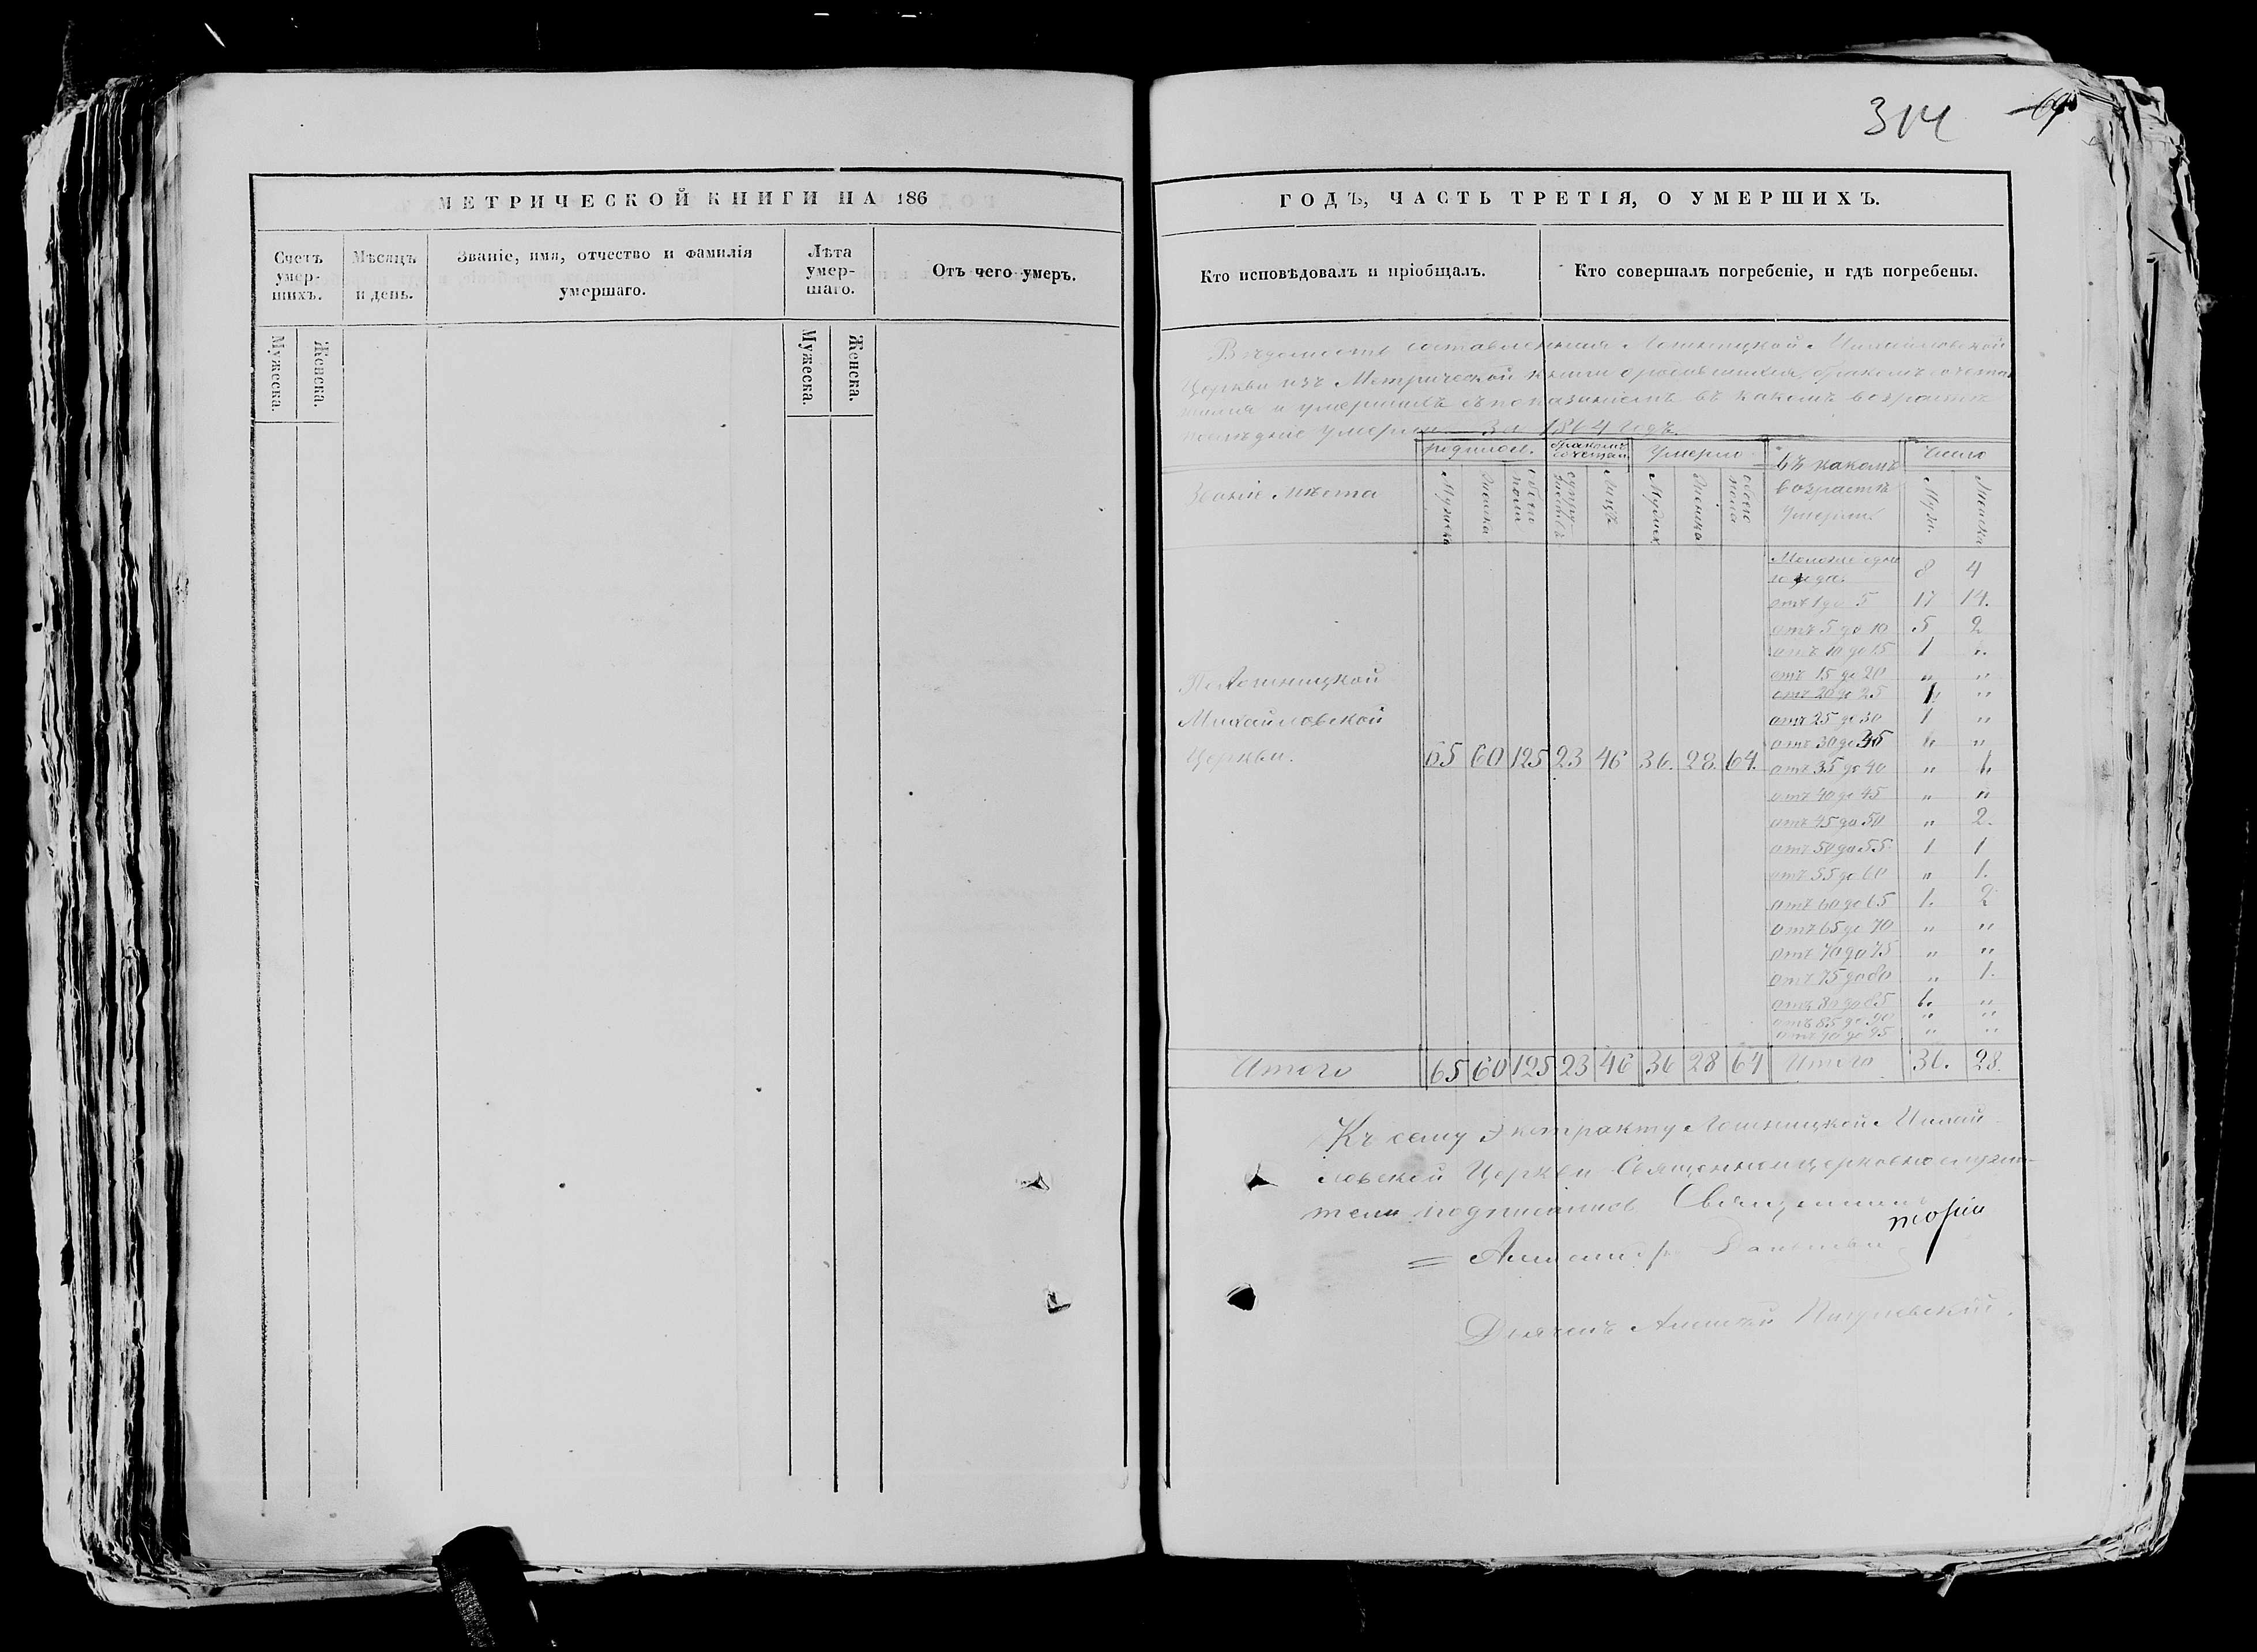 314
МЕТРИЧЕСКОЙ КНИГИ НА 186
Счетъ умер-шихъ.
Мѣсяцъ и день.
Званіе, имя, отчество и фамилія умершаго.
Лѣта умер-шаго.
Отъ чего умеръ.
Мужеска.
Женска.
Мужеска.
Женска.
ГОДЪ, ЧАСТЬ ТРЕТІЯ, О УМЕРШИХЪ.
Кто исповѣдовалъ и пріобщалъ.
Кто совершалъ погребеніе, и гдѣ погребены.
Вѣдомость составленная Лошницкой Михайловской
Церкви изъ Метрической книги о родившихся, бракомъ сочетав
шихся и умершихъ съ показаніемъ въ какомъ возрастѣ
послѣдніе умерли За 1864 годъ.
Званіе мѣста
родилось.
бракомъ сочетан.
Умерло
въ какомъ возрастѣ умерли
Число
Мужеска
Женска
обоего пола
супружествъ
Лицъ
Женска
обоего пола
Муж.
Женска
Моложе одного года 8 4
отъ 1 до 5 17 14.
отъ 5 до 10 5 2
отъ 10 до 15 1 „
отъ 15 до 20 „ „
отъ 20 до 25 1. „
отъ 25 до 30 1 „
отъ 30 до 35 „
По Лошницкой
Михайловской
Церкви.
65 60 125 23 46 36. 28. 64.
отъ 35 до 40 „
отъ 40 до 45 „ „
отъ 45 до 50 „ 2.
отъ 50 до 55 1 1
отъ 55 до 60 „ 1.
отъ 60 до 65 1. 2
отъ 65 до 70 „ „
отъ 70 до 75 „ „
отъ 75 до 80 „ 1.
отъ 80 до 85 1. „
отъ 85 до 90 „ „
отъ 90 до 95 „ „
Итого 65 60 125 23 46 36 28 64 Итого 36. 28.
Къ сему экстракту Лошницкой Михай
ловской Церкви Священно и церковнослужи-
тели подписались Священникъ
Дьячекъ Алексѣй